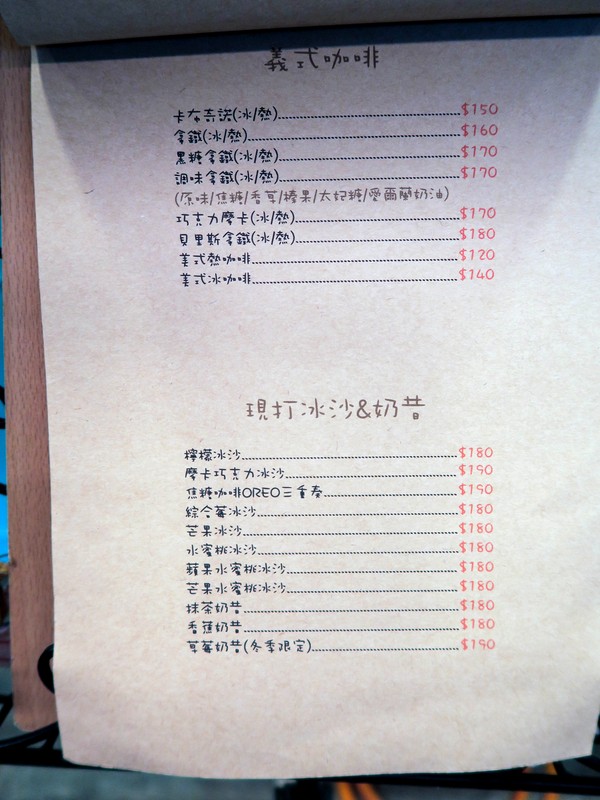 義式咖啡
卡布奇諾(冰/熱)........................$150
拿鐵(冰/熱)........................$160
黑糖拿鐵(冰/熱)........................$170
調味拿鐵(冰/熱)........................$170
(原味/焦糖/香草/榛果/太妃糖/愛爾蘭奶油)
巧克力摩卡(冰/熱)........................$170
貝里斯拿鐵(冰/熱)........................$180
美式熱咖啡........................$120
美式冰咖啡........................$140
現打冰沙&奶昔
檸檬冰沙........................$180
摩卡巧克力冰沙........................$190
焦糖咖啡OREO三重奏........................$190
綜合莓冰沙........................$180
芒果冰沙........................$180
水蜜桃冰沙........................$180
蘋果水蜜桃冰沙........................$180
芒果水蜜桃冰沙........................$180
抹茶奶昔........................$180
香蕉奶昔........................$180
草莓奶昔(冬季限定)........................$190